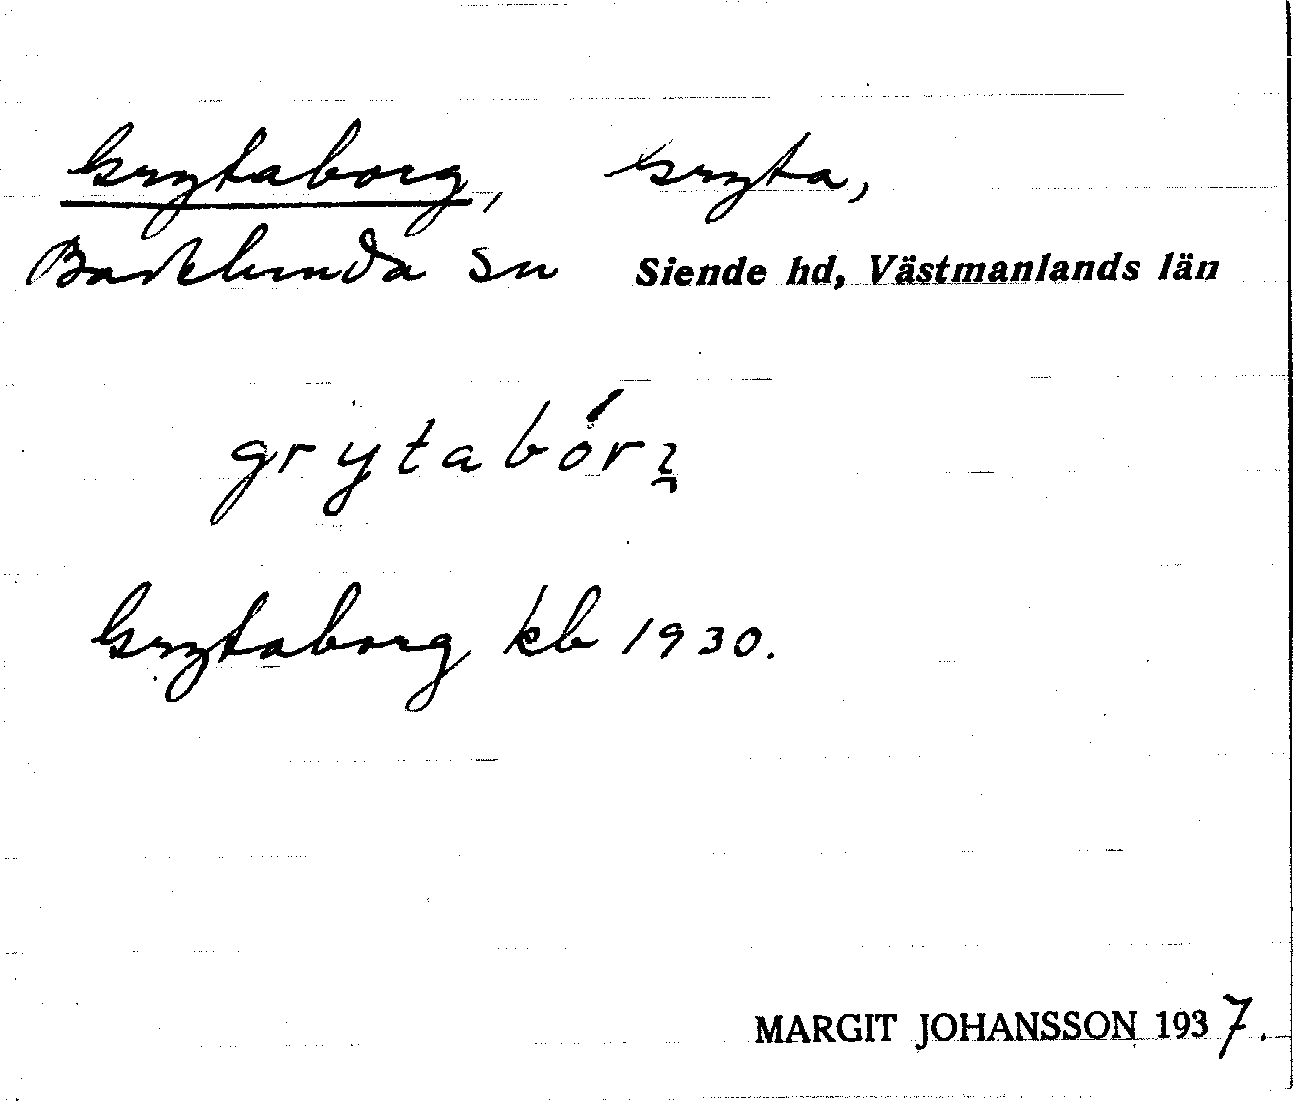 Grytaborg, Gryta,
Badelunda sn Siende hd, Västmanlands län
grytabór
Grytaborg kb 1930.
MARGIT JOHANSSON 1937.